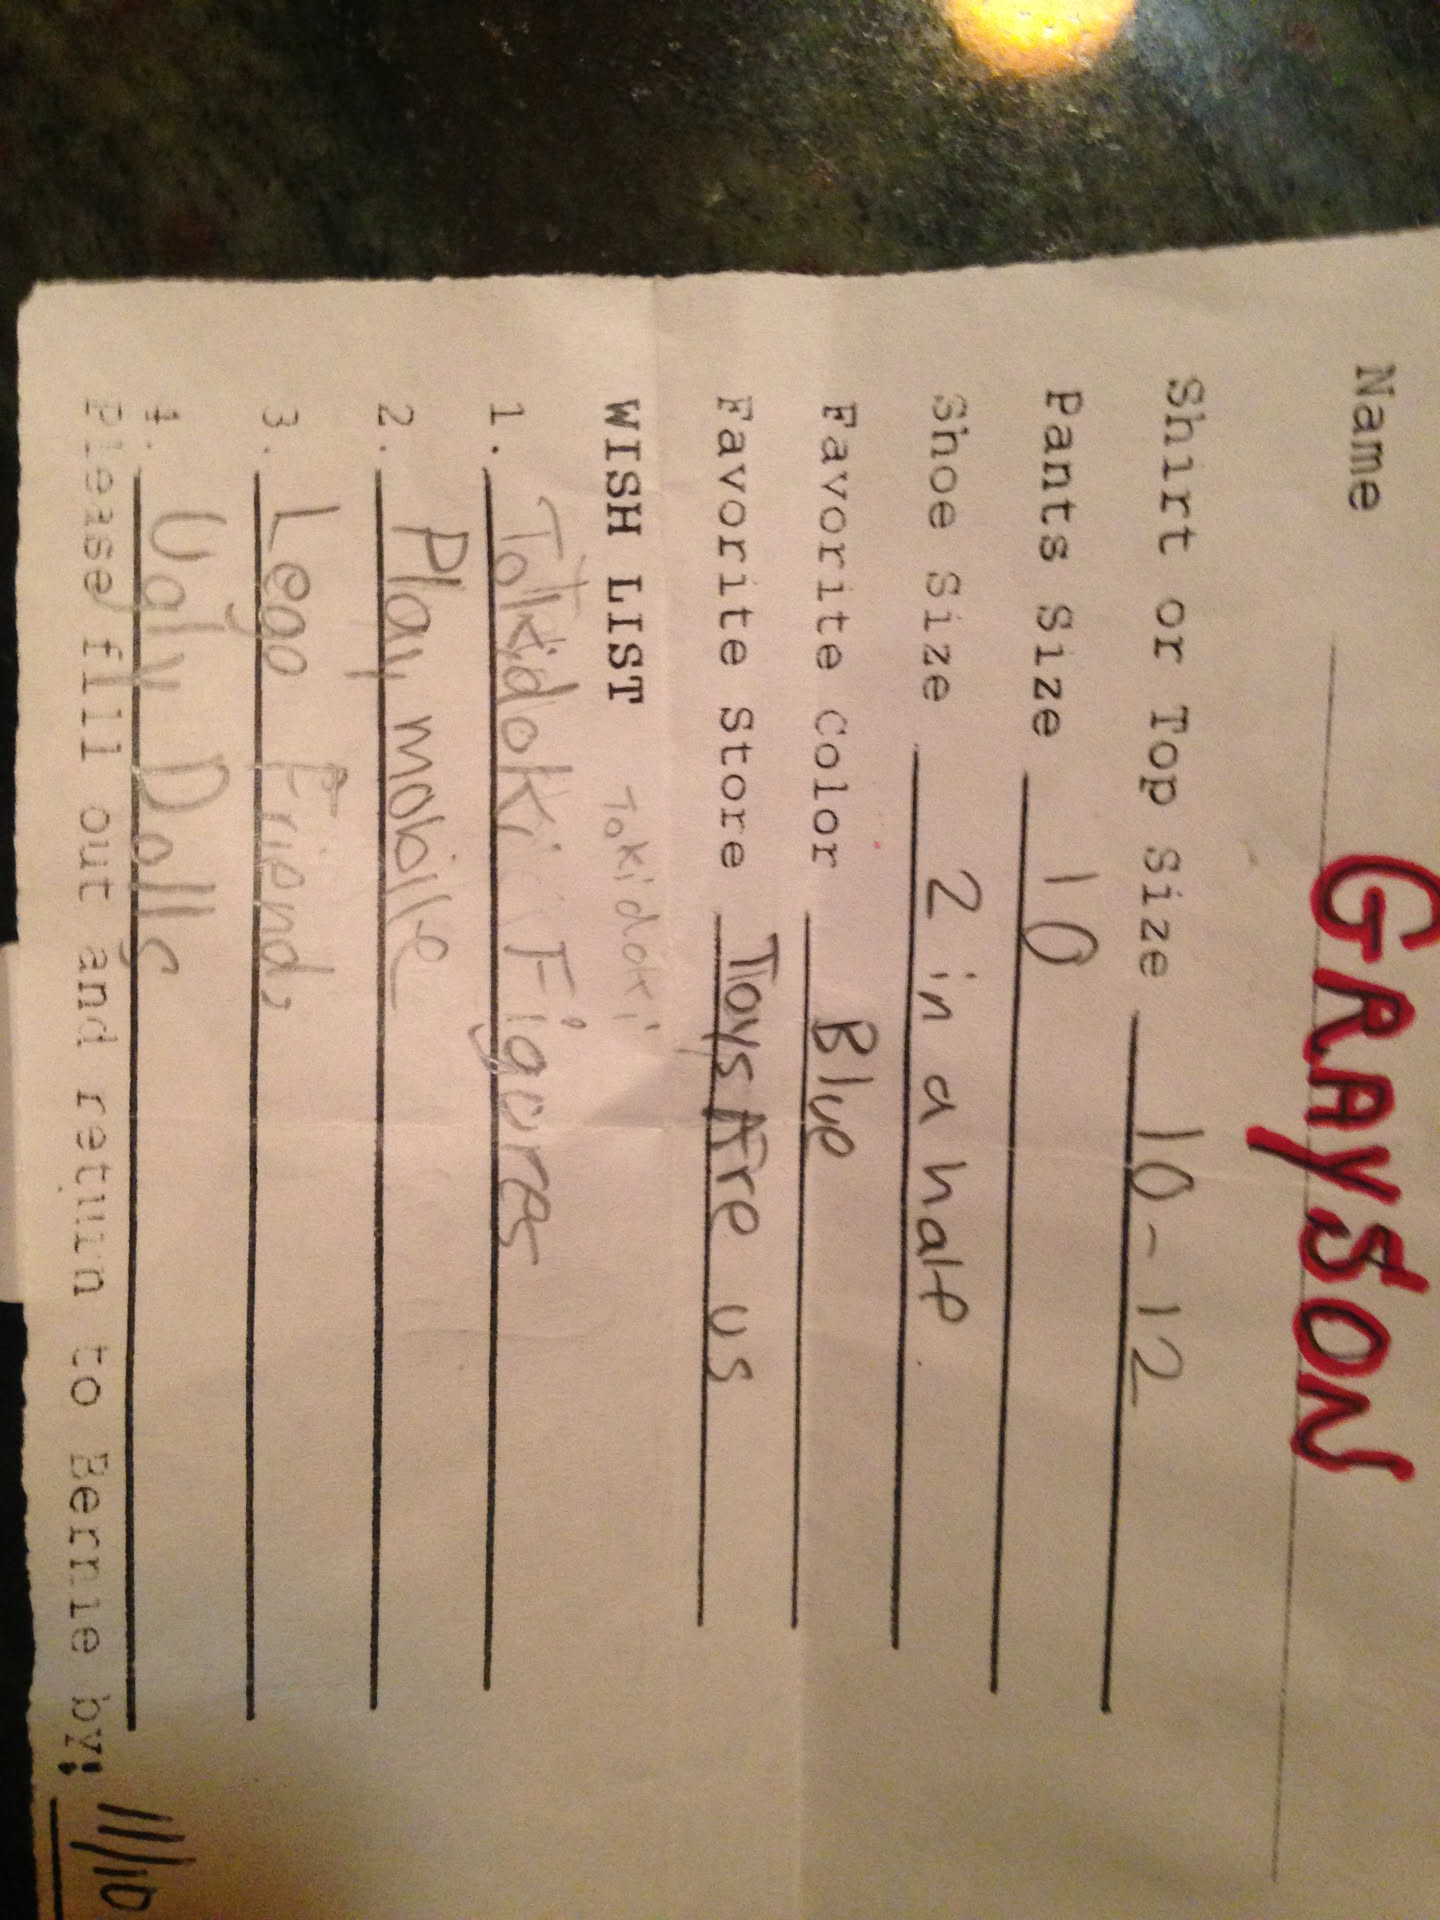 Name GRAYSON
Shirt or Top Size 10-12
Pants Size 10
Shoe Size 2 in a half
Favorite Color Blue
Favorite Store ToysAre us
WISH LIST Tokidoki
1. Tokidoki Figures
2. Play mobille
3. Lego Friends
4. Ugly Dolls
Please fill out and return to Bernie by: 11/10